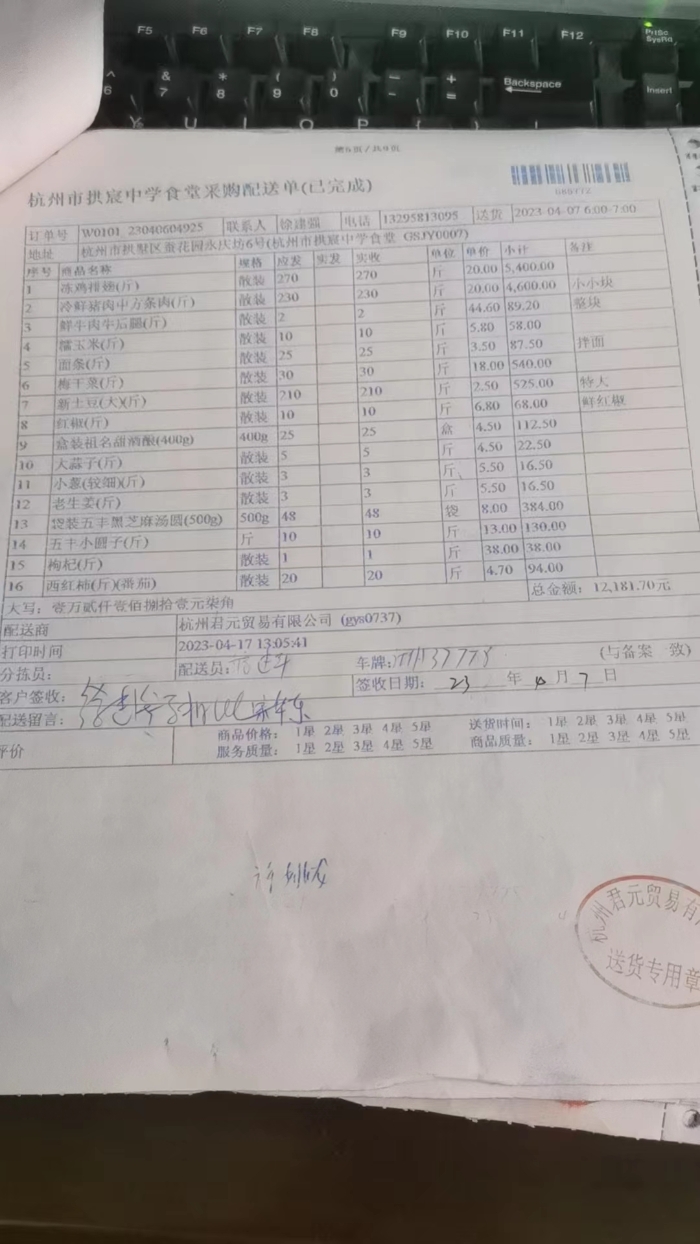 F5 F6 F7 F8 F9 F10 F11 F12 PrtSc SysRq
^ 6 & 7 * 8 ( 9 ) 0 - + = Backspace Insert
Y U I O P
第5页/共9页
杭州市拱宸中学食堂采购配送单(已完成)
订单号 W0101_23040604925 联系人 徐建强 电话 13295813095 送货 2023-04-07 6:00-7:00
地址 杭州市拱墅区蚕花园永庆坊6号(杭州市拱宸中学食堂 GSJY0007)
序号 商品名称 规格 应发 实发 实收 单位 单价 小计 备注
1 冻鸡排翅(斤) 散装 270 270 斤 20.00 5,400.00
2 冷鲜猪肉中方条肉(斤) 散装 230 230 斤 20.00 4,600.00 小小块
3 鲜牛肉牛后腿(斤) 散装 2 2 斤 44.60 89.20 整块
4 糯玉米(斤) 散装 10 10 斤 5.80 58.00
5 面条(斤) 散装 25 25 斤 3.50 87.50 拌面
6 梅干菜(斤) 散装 30 30 斤 18.00 540.00
7 新土豆(大)(斤) 散装 210 210 斤 2.50 525.00 特大
8 红椒(斤) 散装 10 10 斤 6.80 68.00 鲜红椒
9 盒装祖名甜酒酿(400g) 400g 25 25 盒 4.50 112.50
10 大蒜子(斤) 散装 5 5 斤 4.50 22.50
11 小葱(较细)(斤) 散装 3 3 斤 5.50 16.50
12 老生姜(斤) 散装 3 3 斤 5.50 16.50
13 袋装五丰黑芝麻汤圆(500g) 500g 48 48 袋 8.00 384.00
14 五丰小圆子(斤) 斤 10 10 斤 13.00 130.00
15 枸杞(斤) 散装 1 1 斤 38.00 38.00
16 西红柿(斤)(番茄) 散装 20 20 斤 4.70 94.00
总金额: 12,181.70元
大写: 壹万贰仟壹佰捌拾壹元柒角
配送商 杭州君元贸易有限公司 (gys0737)
打印时间 2023-04-17 13:05:41
分拣员: 配送员: 车牌: (与备案一致)
客户签收: 签收日期: 23 年 4 月 7 日
配送留言:
评价 商品价格: 1星 2星 3星 4星 5星 送货时间: 1星 2星 3星 4星 5星
服务质量: 1星 2星 3星 4星 5星 商品质量: 1星 2星 3星 4星 5星
杭州君元贸易有
送货专用章